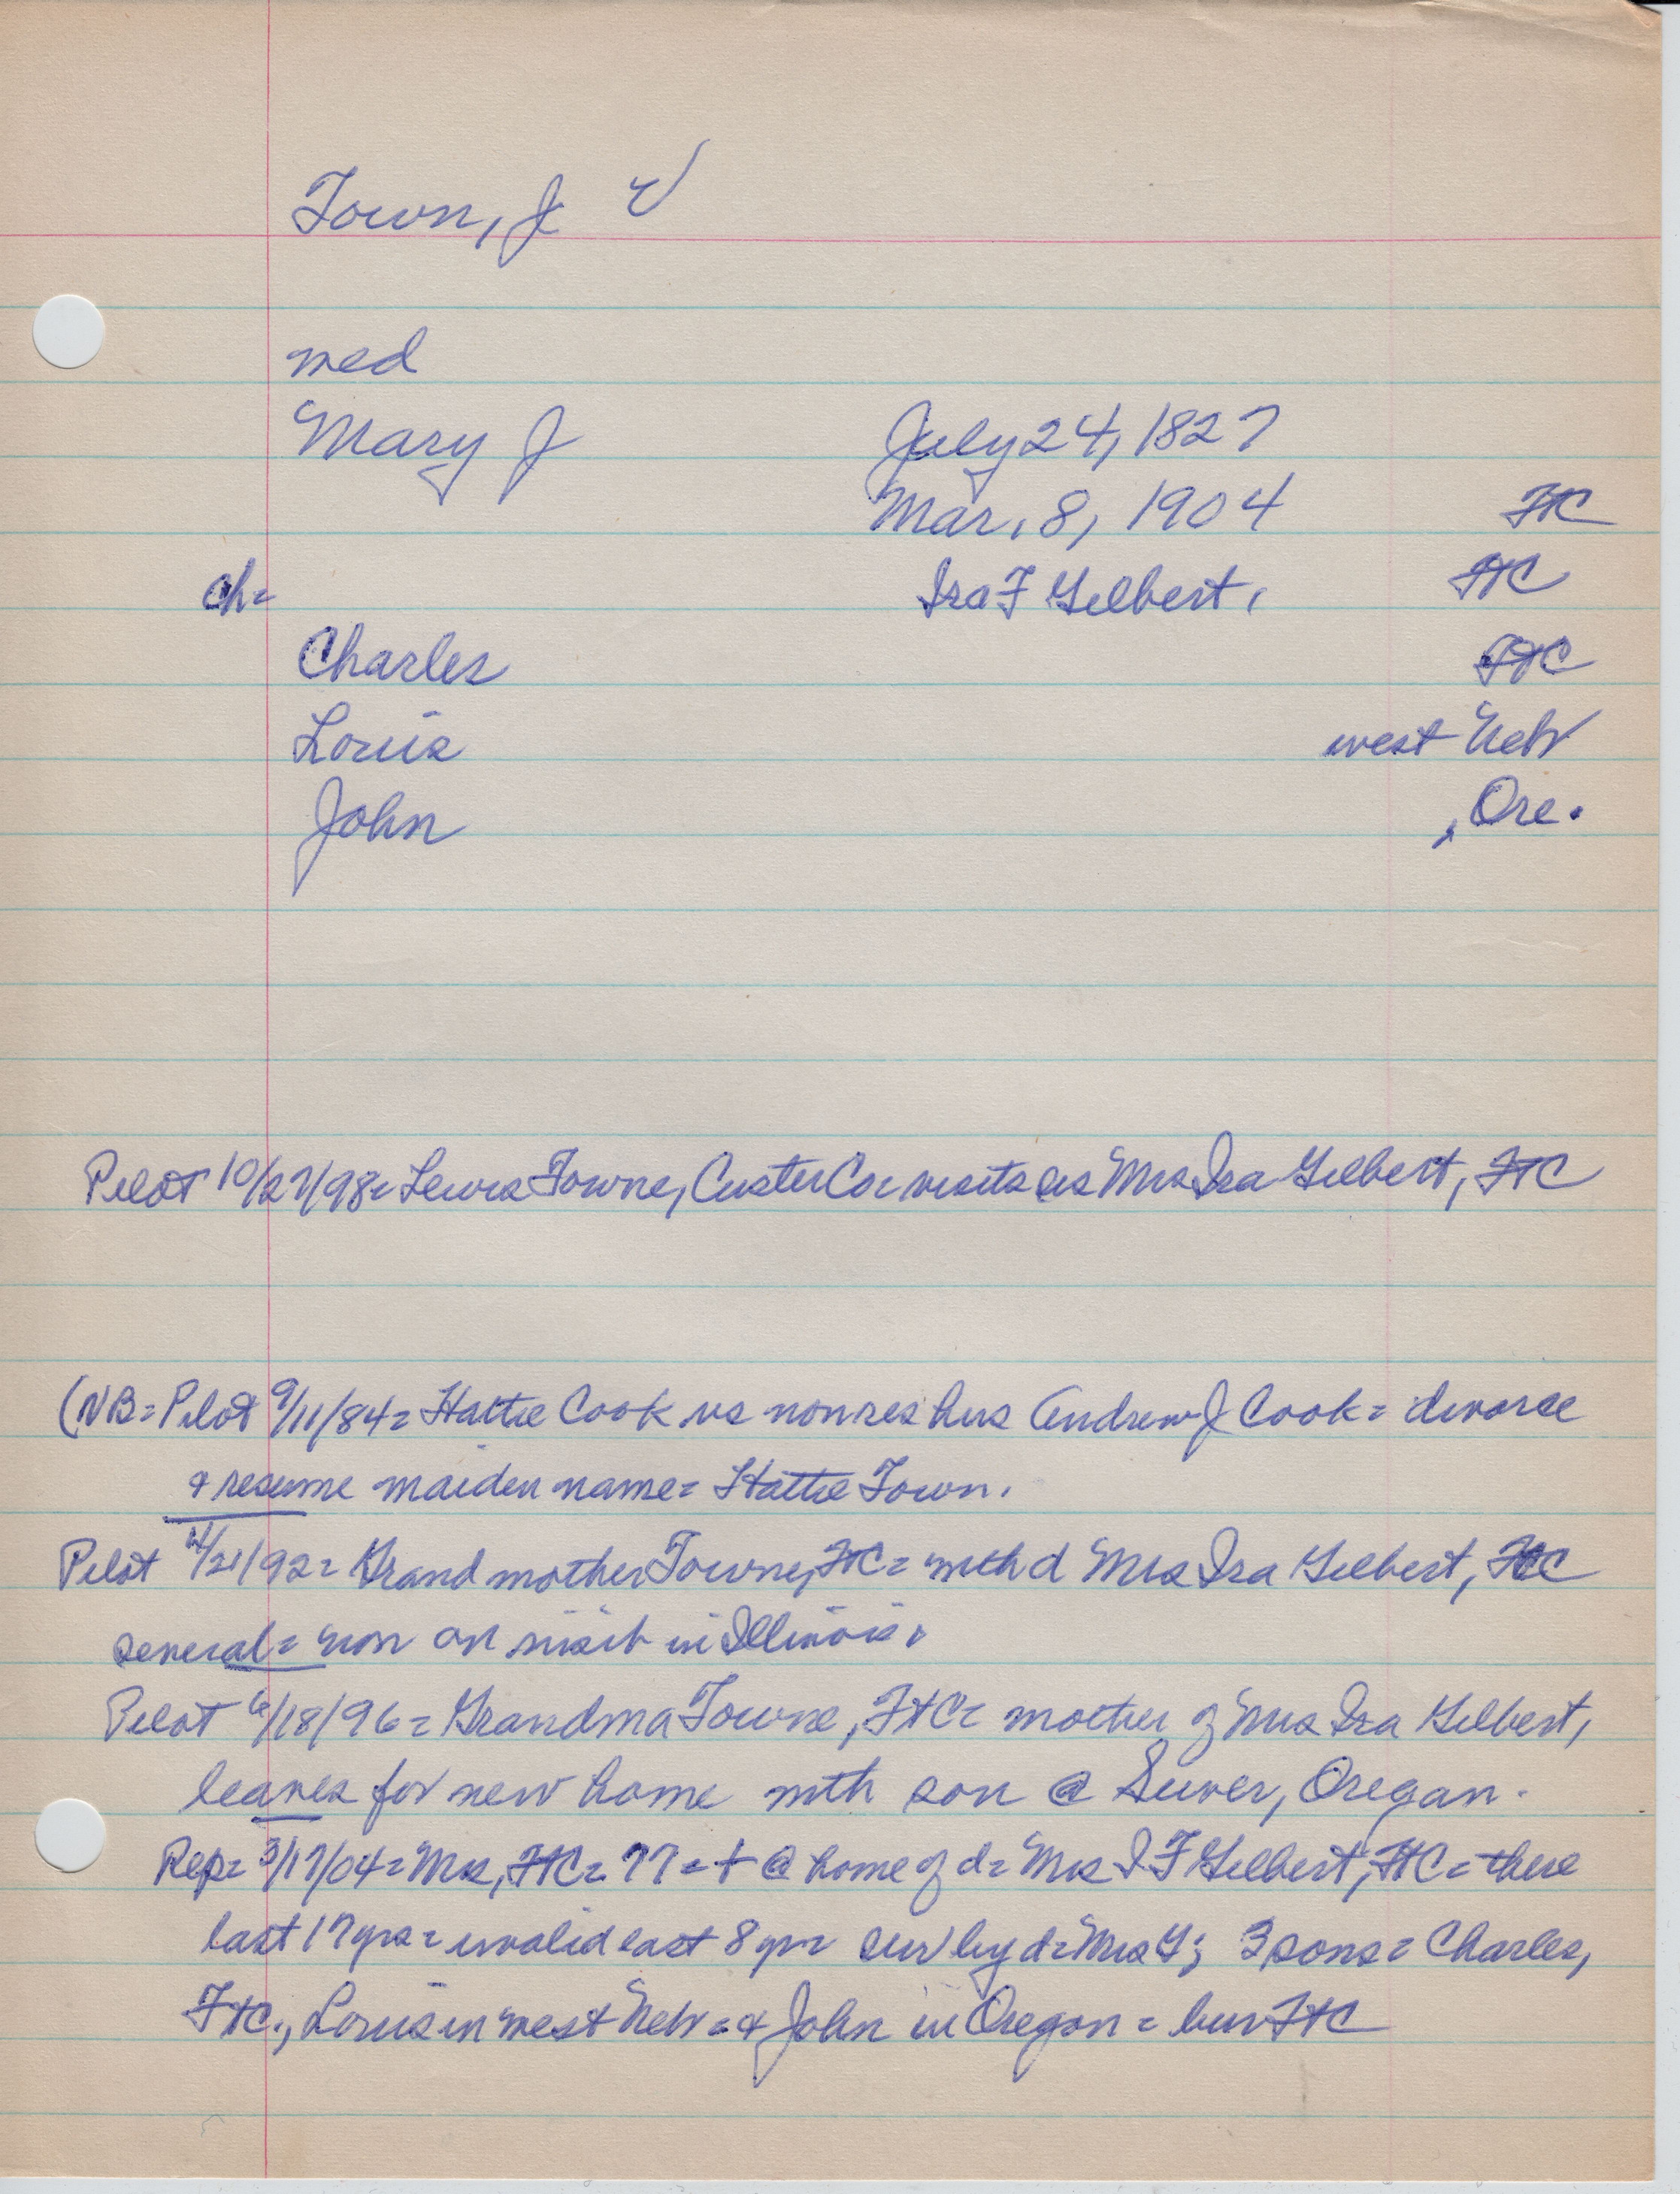 Town, J V
med
Mary J July 24, 1827
Mar. 8, 1904 FtC
ch= Ira F Gilbert, FtC
Charles FtC
Louis west Neb
John , Ore.
Pilot 10/27/98= Lewis Towne, Custer Co= visits sis Mrs Ira Gilbert, FtC
(NB= Pilot 9/11/84= Hattie Cook vs nonres hus Andrew J Cook= divorce
& resume maiden name= Hattie Town.
Pilot /21/92= Grandmother Towne, FtC= with d Mrs Ira Gilbert, FtC
several= now on visit in Illinois.
Pilot 6/18/96= Grandma Towne, FtC= mother of Mrs Ira Gilbert,
leaves for new home with son @ Suver, Oregon.
Rep= 3/17/04= Mrs, FtC= 77= + @ home of d= Mrs I F Gilbert, FtC= there
last 17 yrs= invalid last 8 yr= sur by d= Mrs G; 3 sons= Charles,
FtC., Louis in west Neb= & John in Oregon= bur FtC